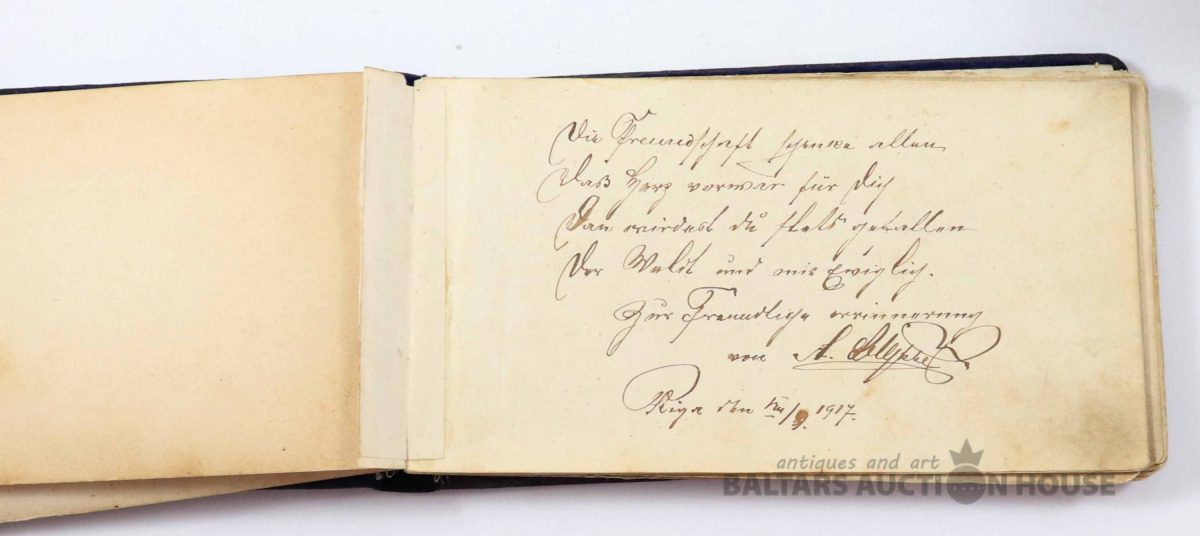 Die Freundschaft schenke allen
Das Herz vorwar für dich
Dan wirdest du stets gefallen
Der Weldt und mir Ewiglich.
Zur Freundliche errinnerung
von A.
Riga den VIII/9. 1917.
antiques and art
BALTARS AUCTION HOUSE